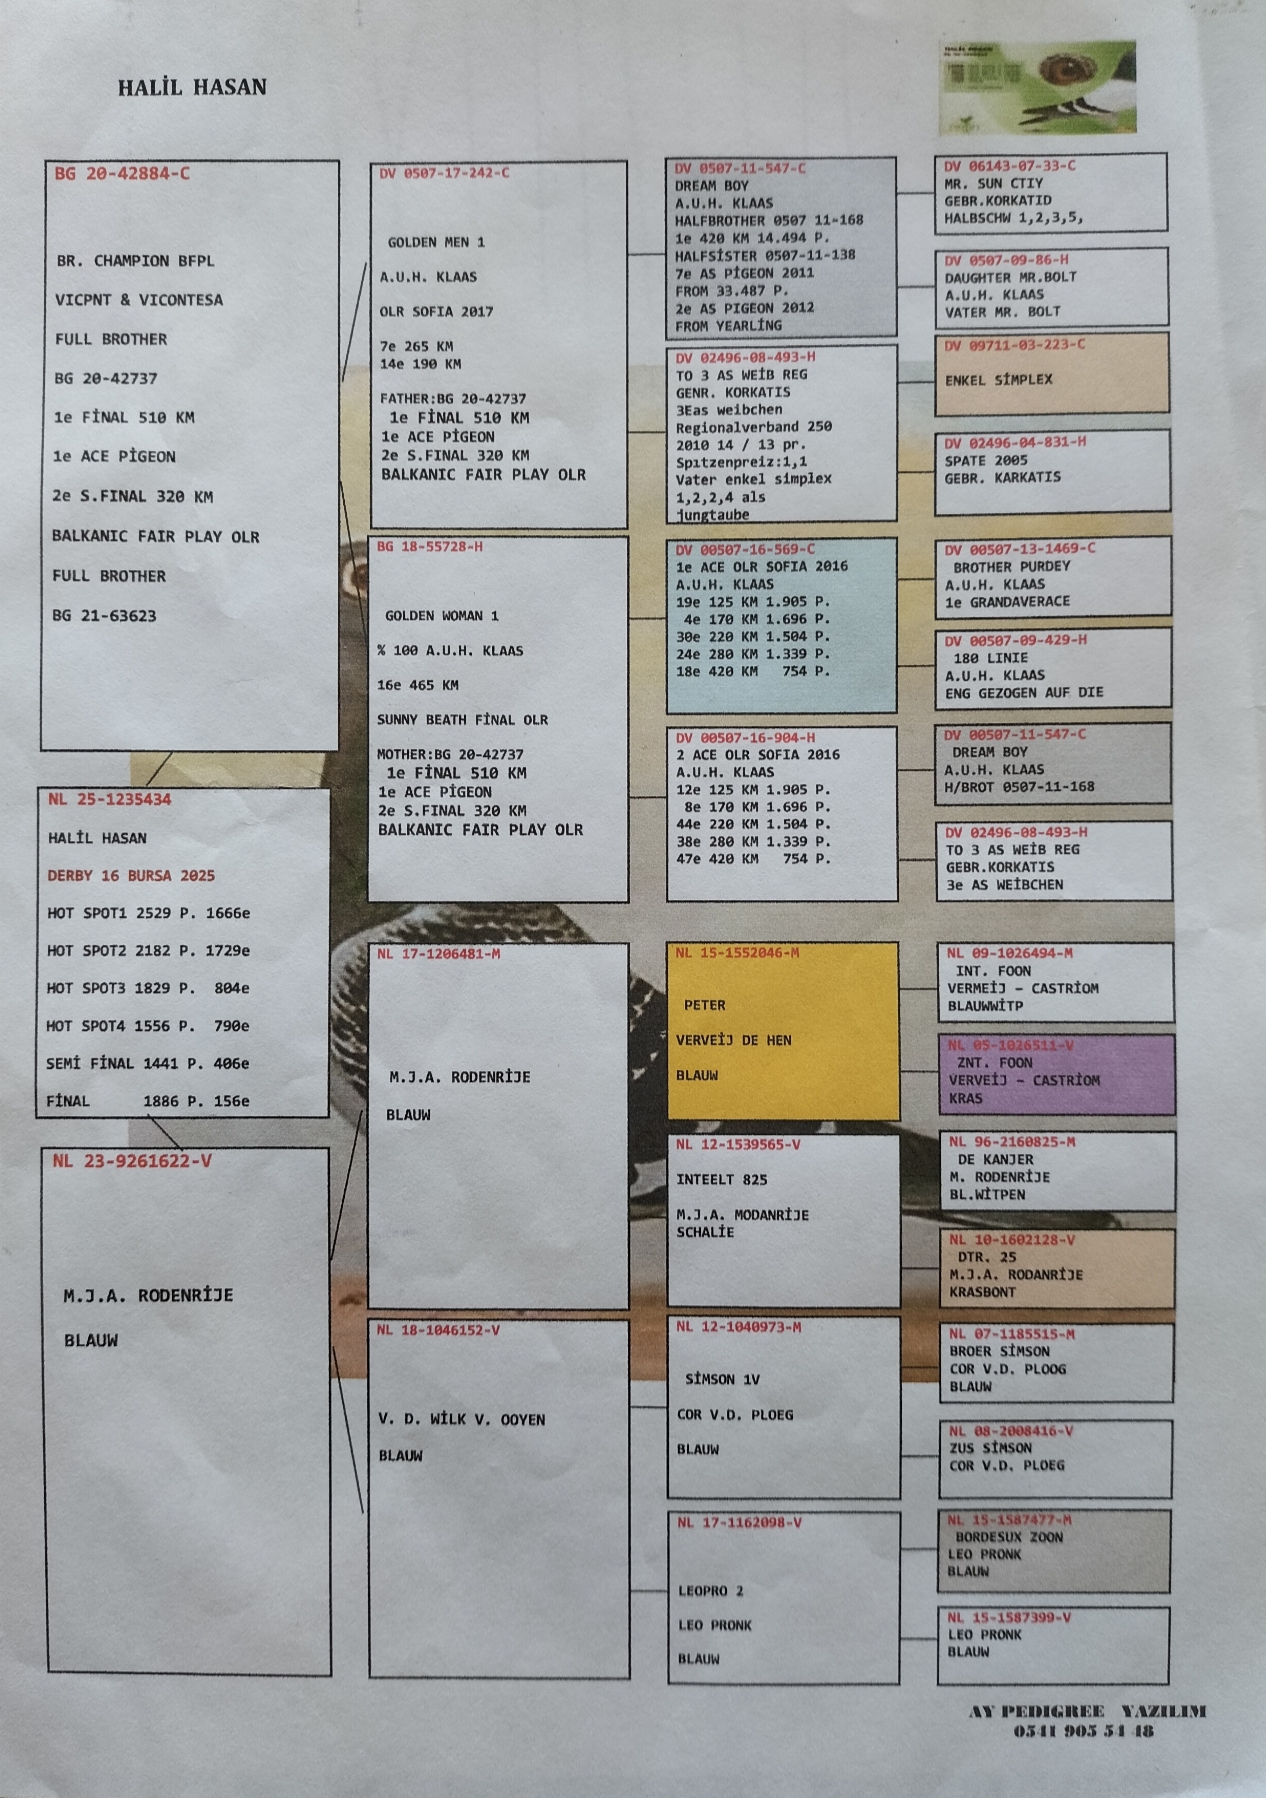 HALİL HASAN
BG 20-42884-C
BR. CHAMPION BFPL
VICPNT & VICONTESA
FULL BROTHER
BG 20-42737
1e FİNAL 510 KM
1e ACE PİGEON
2e S.FINAL 320 KM
BALKANIC FAIR PLAY OLR
FULL BROTHER
BG 21-63623
NL 25-1235434
HALİL HASAN
DERBY 16 BURSA 2025
HOT SPOT1 2529 P. 1666e
HOT SPOT2 2182 P. 1729e
HOT SPOT3 1829 P. 804e
HOT SPOT4 1556 P. 790e
SEMİ FİNAL 1441 P. 406e
FİNAL 1886 P. 156e
NL 23-9261622-V
M.J.A. RODENRİJE
BLAUW
DV 0507-17-242-C
GOLDEN MEN 1
A.U.H. KLAAS
OLR SOFIA 2017
7e 265 KM
14e 190 KM
FATHER:BG 20-42737
1e FİNAL 510 KM
1e ACE PİGEON
2e S.FINAL 320 KM
BALKANIC FAIR PLAY OLR
BG 18-55728-H
GOLDEN WOMAN 1
% 100 A.U.H. KLAAS
16e 465 KM
SUNNY BEATH FİNAL OLR
MOTHER:BG 20-42737
1e FİNAL 510 KM
1e ACE PİGEON
2e S.FINAL 320 KM
BALKANIC FAIR PLAY OLR
NL 17-1206481-M
M.J.A. RODENRİJE
BLAUW
NL 18-1046152-V
V. D. WİLK V. OOYEN
BLAUW
DV 0507-11-547-C
DREAM BOY
A.U.H. KLAAS
HALFBROTHER 0507 11-168
1e 420 KM 14.494 P.
HALFSİSTER 0507-11-138
7e AS PİGEON 2011
FROM 33.487 P.
2e AS PIGEON 2012
FROM YEARLİNG
DV 02496-08-493-H
TO 3 AS WEİB REG
GENR. KORKATIS
3Eas weibchen
Regionalverband 250
2010 14 / 13 pr.
Spıtzenpreiz:1,1
Vater enkel simplex
1,2,2,4 als
jungtaube
DV 00507-16-569-C
1e ACE OLR SOFIA 2016
A.U.H. KLAAS
19e 125 KM 1.905 P.
4e 170 KM 1.696 P.
30e 220 KM 1.504 P.
24e 280 KM 1.339 P.
18e 420 KM 754 P.
DV 00507-16-904-H
2 ACE OLR SOFIA 2016
A.U.H. KLAAS
12e 125 KM 1.905 P.
8e 170 KM 1.696 P.
44e 220 KM 1.504 P.
38e 280 KM 1.339 P.
47e 420 KM 754 P.
NL 15-1552046-M
PETER
VERVEİJ DE HEN
BLAUW
NL 12-1539565-V
INTEELT 825
M.J.A. MODANRİJE
SCHALİE
NL 12-1040973-M
SİMSON 1V
COR V.D. PLOEG
BLAUW
NL 17-1162098-V
LEOPRO 2
LEO PRONK
BLAUW
DV 06143-07-33-C
MR. SUN CTIY
GEBR.KORKATID
HALBSCHW 1,2,3,5,
DV 0507-09-86-H
DAUGHTER MR.BOLT
A.U.H. KLAAS
VATER MR. BOLT
DV 09711-03-223-C
ENKEL SİMPLEX
DV 02496-04-831-H
SPATE 2005
GEBR. KARKATIS
DV 00507-13-1469-C
BROTHER PURDEY
A.U.H. KLAAS
1e GRANDAVERACE
DV 00507-09-429-H
180 LINIE
A.U.H. KLAAS
ENG GEZOGEN AUF DIE
DV 00507-11-547-C
DREAM BOY
A.U.H. KLAAS
H/BROT 0507-11-168
DV 02496-08-493-H
TO 3 AS WEİB REG
GEBR.KORKATIS
3e AS WEİBCHEN
NL 09-1026494-M
INT. FOON
VERMEİJ - CASTRİOM
BLAUWWİTP
NL 05-1026511-V
ZNT. FOON
VERVEİJ - CASTRİOM
KRAS
NL 96-2160825-M
DE KANJER
M. RODENRİJE
BL.WİTPEN
NL 10-1602128-V
DTR. 25
M.J.A. RODANRİJE
KRASBONT
NL 07-1185515-M
BROER SİMSON
COR V.D. PLOOG
BLAUW
NL 08-2008416-V
ZUS SİMSON
COR V.D. PLOEG
NL 15-1587477-M
BORDESUX ZOON
LEO PRONK
BLAUW
NL 15-1587399-V
LEO PRONK
BLAUW
AY PEDIGREE YAZILIM
0541 905 54 48